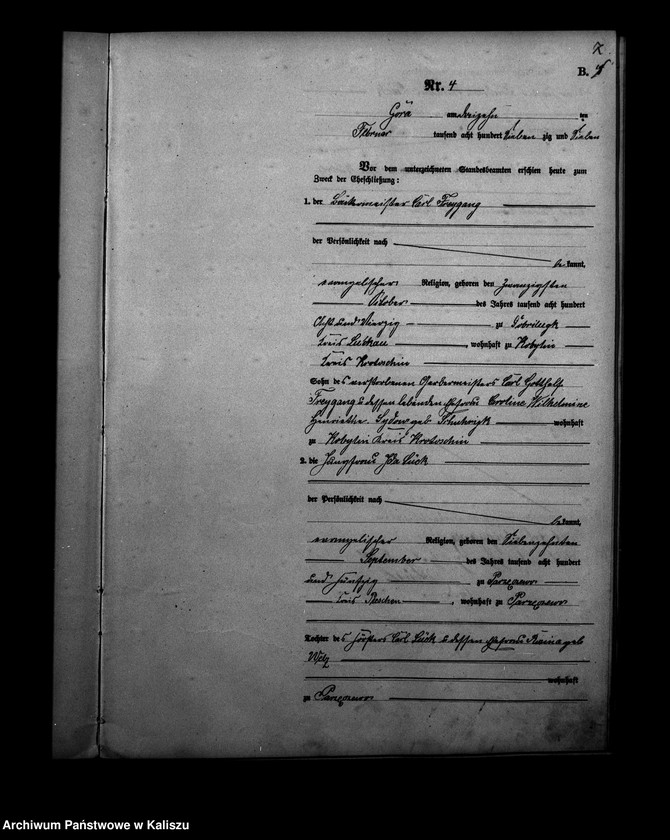 7
B.
Nr. 4
Góra am dreizehn ten
Februar tausend acht hundert sieben zig und sieben
Vor dem unterzeichneten Standesbeamten erschien heute zum
Zweck der Eheschließung:
1. der Bäckermeister Carl Freygang
der Persönlichkeit nach
be kannt,
evangelischer Religion, geboren den zwanzigsten
October des Jahres tausend acht hundert
Acht und Vierzig zu Dobrilugk
Kreis Luckau, wohnhaft zu Kobylin
Kreis Krotoschin
Sohn des verstorbenen Gerbermeisters Carl Gotthelf
Freygang u dessen lebenden Ehefrau Caroline Wilhelmine
Henriette geb wohnhaft
zu Kobylin Kreis Krotoschin
2. die Jungfrau Ida Lück
der Persönlichkeit nach
be kannt,
evangelischer Religion, geboren den Siebenzehnten
September des Jahres tausend acht hundert
und fünfzig zu
Kreis Pleschen, wohnhaft zu
Tochter des Försters Carl Lück u dessen Ehefrau geb
wohnhaft
zu
Archiwum Państwowe w Kaliszu